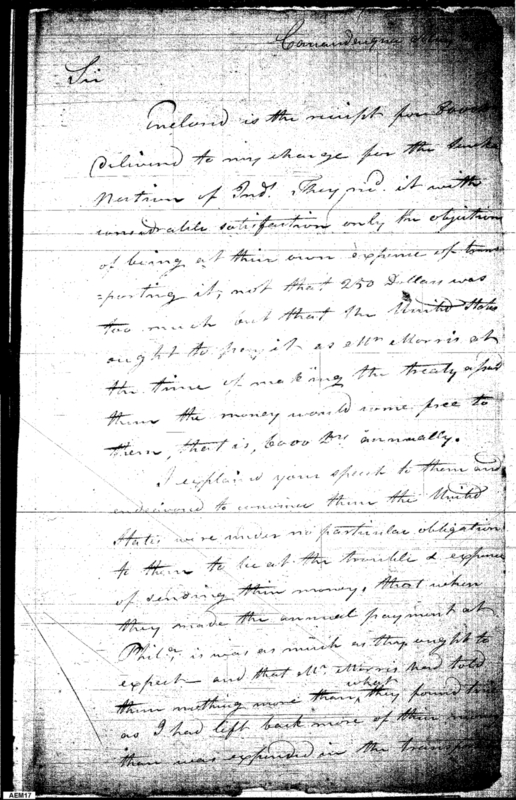 Canandaigua
Sir
Enclosd is the receipt for
Deliverd to my charge for the
Nation of Ind.s They recd. it with
considrable satisfaction only the objection
of being at their own expense of trans
=porting it, not that 250 Dollars was
too much but that the United States
ought to pay it as Mr Morris at
the time of making the treaty
them the money would come free to
them, that is, 6000 Drs annually.
I explaind your speech to them and
endeavored to convince them the United
States were under no particular obligation
to them to be at the trouble & expense
of sending their money, that when
they made the annual payment at
Phila. it was as much as they ought to
expect and that Mr. Morris had told
them nothing more than what they found true
as I had left back more of their money
than was expended in the
AEM17